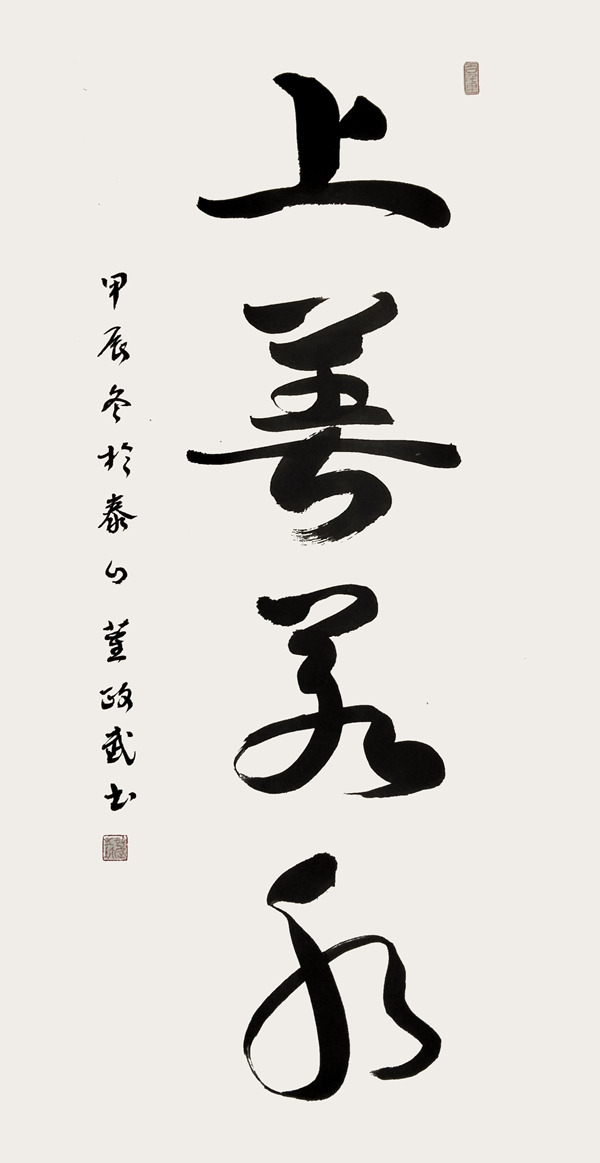 上善若水
甲辰冬於泰山董政武书